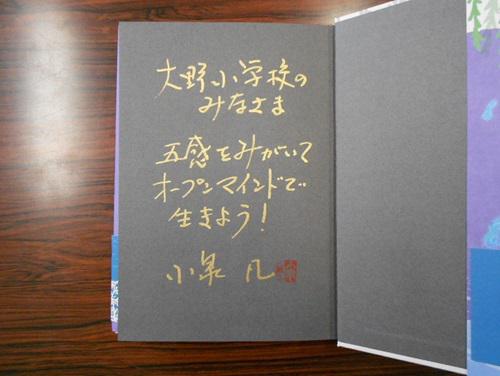 大野小学校の
みなさま
五感をみがいて
オープンマインドで
生きよう!
小泉 凡